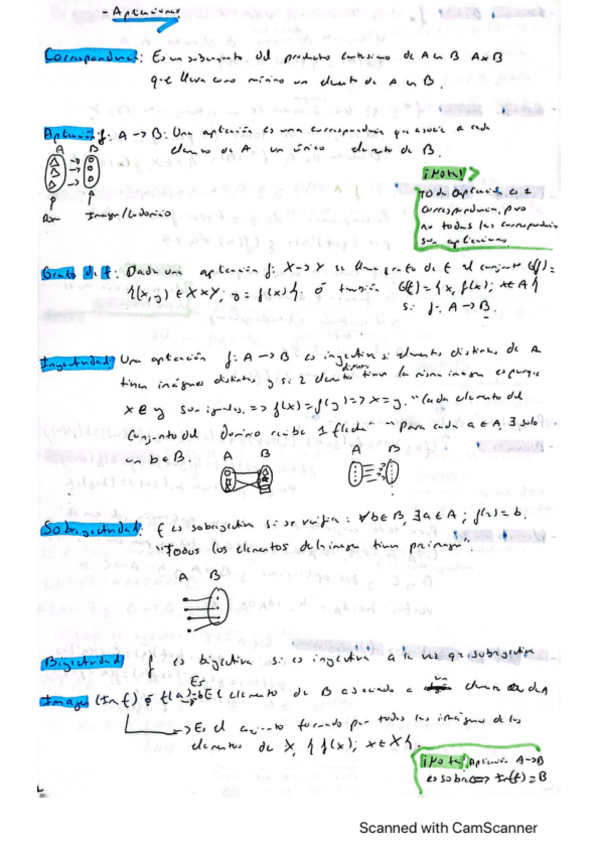 - Aplicaciones
Correspondencia: Es un subconjunto del producto cartesiano de A en B AxB
que lleva como mínimo un elemento de A en B.
Aplicación f: A -> B: Una aplicación es una correspondencia que asocia a cada
elemento de A un único elemento de B.
A B
Dom Imagen/Codominio
¡Nota!
TODA aplicación es 1
correspondencia, pero
no todas las correspondencias
son aplicaciones
Grafo de f: Dada una aplicación f: X -> Y se llama grafo de f al conjunto G(f)=
{(x,y) ∈ X×Y; y = f(x)}. ó también G(f)={x, f(x); x∈A}
si f: A -> B.
Inyectividad Una aplicación f: A -> B es inyectiva si elementos distintos de A
tienen imágenes distintas y si 2 elementos tienen la misma imagen es porque
x e y son iguales. => f(x)=f(y)=>x=y. "Cada elemento del
conjunto del dominio recibe 1 flecha" "Para cada a∈A, ∃ solo
un b∈B.
A B A B
Sobreyectividad: f es sobreyectiva si se verifica: ∀b∈B, ∃a∈A; f(a)=b.
"Todos los elementos de la imagen tienen preimagen".
A B
Biyectividad f es biyectiva si es inyectiva a la vez que sobreyectiva
Imagen (Im f) f(a)=b Es el elemento de B asociado a un elemento de A
-> Es el conjunto formado por todas las imágenes de los
elementos de X, {f(x); x∈X}.
¡Nota! Aplicación A->B
es sobre <=> Im(f)=B
Scanned with CamScanner